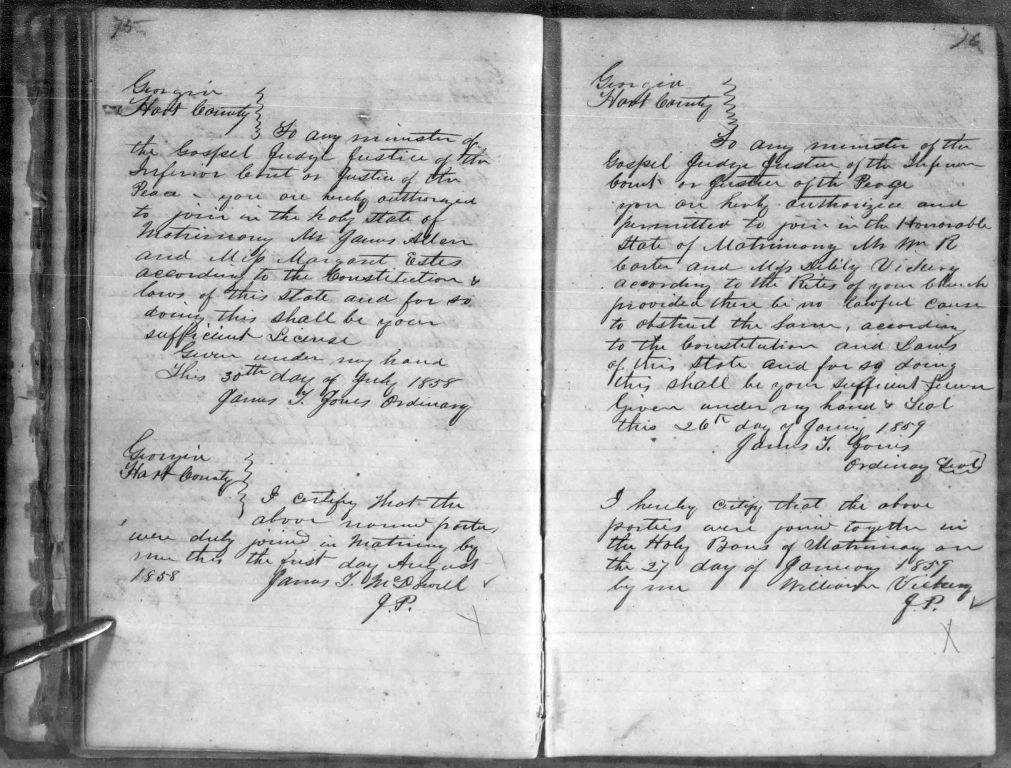 75
Georgia
Hart County
To any minister of
the Gospel Judge Justice of the
Inferior Court or Justice of the
Peace - you are hereby authorized
to join in the holy state of
Matrimony Mr James Allen
and Miss Margaret Estes
according to the Constitution &
laws of this State and for so
doing this shall be your
sufficient License
Given under my hand
This 30th day of July 1858
James T. Jones Ordinary
Georgia
Hart County
I certify that the
above named parties
were duly joined in matrimony by
me this the first day August
1858 James T. McDowell
J.P.
76
Georgia
Hart County
To any minister of the
Gospel Judge Justice of the Inferior
Court or Justice of the Peace
you are hereby authorized and
permitted to join in the Honorable
State of Matrimony Mr Wm R
Carter and Miss Vickery
according to the Rites of your Church
provided there be no lawful cause
to obstruct the Same, according
to the Constitution and Laws
of this State and for so doing
this shall be your sufficient
Given under my hand & Seal
this 26th day of January 1859
James T. Jones
Ordinary Seal
I hereby certify that the above
parties were joined together in
the Holy Bans of Matrimony on
the 27 day of January 1859
by me William Vickery
J.P.